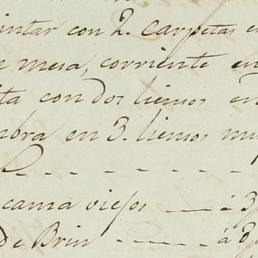 intar con 2. carpetas e
e mesa, corriente en
ta con dos liensos en
bra en 3. liensos mu
cama viejos — à 3
de Brin - - - - - à 8